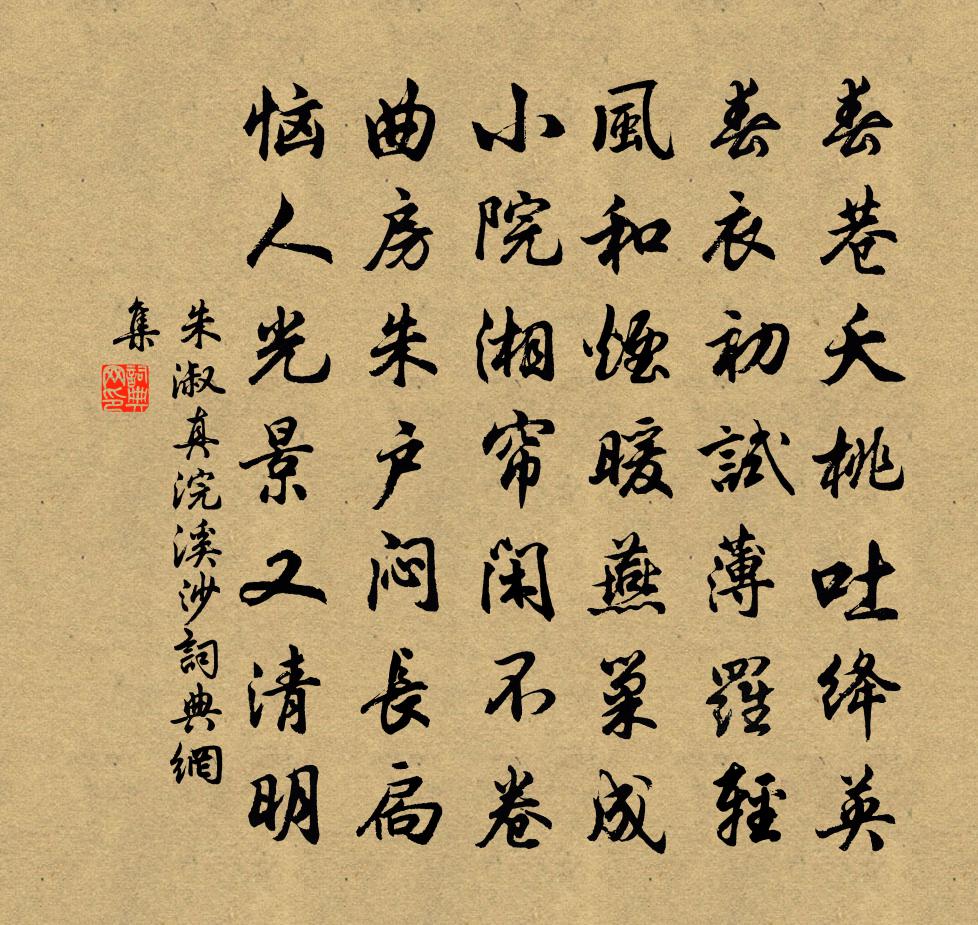 春巷夭桃吐绛英
春衣初試薄羅輕
風和煙暖燕巢成
小院湘帘闲不卷
曲房朱户闷長扃
恼人光景又清明
朱淑真浣溪沙詞典網
集
詞典
网印